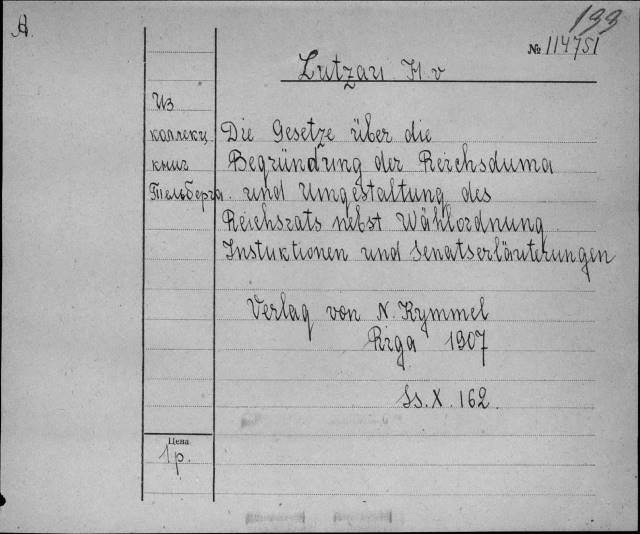 A.
133
№ 114751
Lutzau H. v
Из
коллекц.
книг
Тельберга
Die Gesetze über die
Begründung der Reichsduma
und Umgestaltung des
Reichsrats nebst Wählordnung
Instuktionen und Senatserläuterungen
Verlag von N. Kymmel
Riga 1907
Ss. X. 162
Цена
1 р.